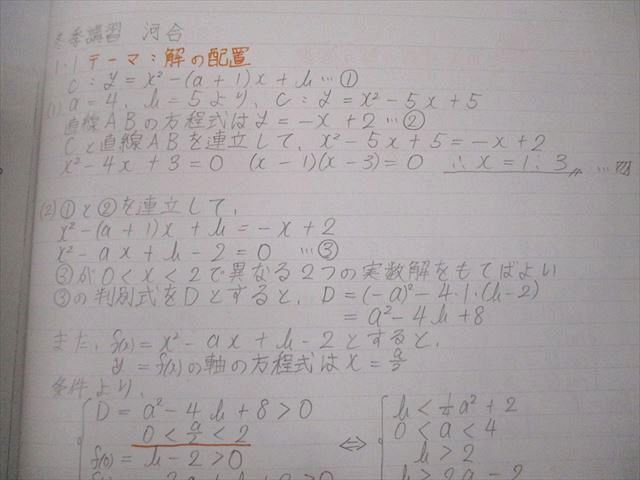 冬季講習 河合
1.1 テーマ:解の配置
C:y=x²-(a+1)x+b…①
(1) a=4、b=5より、C:y=x²-5x+5
直線ABの方程式はy=-x+2…②
Cと直線ABを連立して、x²-5x+5=-x+2
x²-4x+3=0 (x-1)(x-3)=0 ∴x=1:3 〃 …
(2)①と②を連立して、
x²-(a+1)x+b=-x+2
x²-ax+b-2=0 …③
③が0<x<2で異なる2つの実数解をもてばよい
③の判別式をDとすると、D=(-a)²-4・1・(b-2)
=a²-4b+8
また、f(x)=x²-ax+b-2とすると、
y=f(x)の軸の方程式はx=a/2
条件より、
D=a²-4b+8>0
0<a/2<2
f(0)=b-2>0
⇔
b<1/4a²+2
0<a<4
b>2
b>2a-2